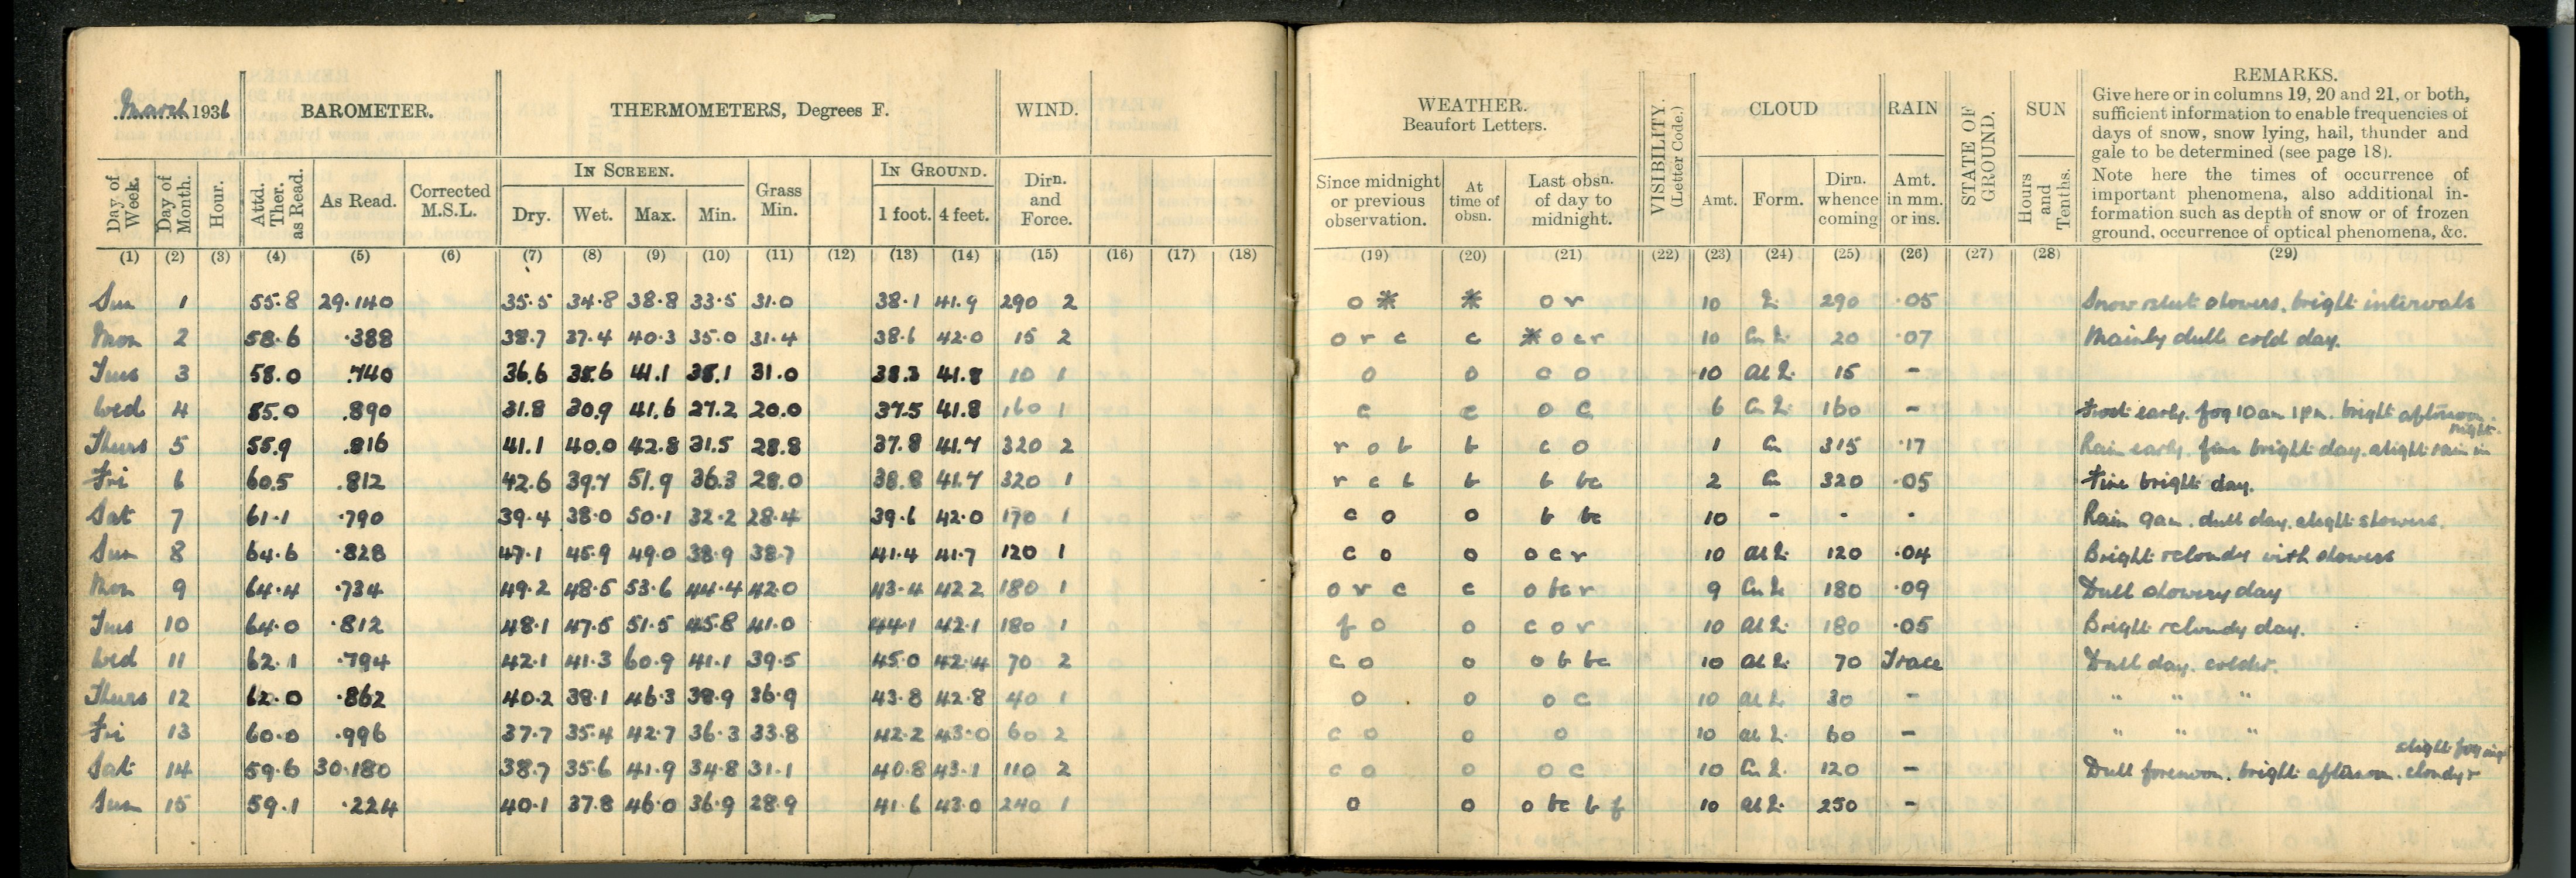 March 1936
BAROMETER.
THERMOMETERS, Degrees F.
WIND.
WEATHER.
Beaufort Letters.
VISIBILITY.
(Letter Code.)
CLOUD
RAIN
STATE OF
GROUND.
SUN
REMARKS.
Give here or in columns 19, 20 and 21, or both,
sufficient information to enable frequencies of
days of snow, snow lying, hail, thunder and
gale to be determined (see page 18).
Note here the times of occurrence of
important phenomena, also additional in-
formation such as depth of snow or of frozen
ground, occurrence of optical phenomena, &c.
Day of Week.
Day of Month.
Hour.
Attd. Ther. as Read.
As Read.
Corrected M.S.L.
IN SCREEN.
Dry. Wet. Max. Min.
Grass Min.
IN GROUND.
1 foot. 4 feet.
Dirn. and Force.
Since midnight or previous observation.
At time of obsn.
Last obsn. of day to midnight.
Amt. Form. Dirn. whence coming
Amt. in mm. or ins.
Hours and Tenths.
(1) (2) (3) (4) (5) (6) (7) (8) (9) (10) (11) (12) (13) (14) (15) (16) (17) (18) (19) (20) (21) (22) (23) (24) (25) (26) (27) (28) (29)
Sun 1 55.8 29.140 35.5 34.8 38.8 33.5 31.0 38.1 41.9 290 2 o * * o r 10 290 .05 Snow sleet showers, bright intervals
Mon 2 58.6 .388 38.7 37.4 40.3 35.0 31.4 38.6 42.0 15 2 o r c c * o c r 10 20 .07 Mainly dull cold day.
Tues 3 58.0 .740 36.6 41.1 31.0 38.3 41.8 10 1 o o c o 10 15 -
Wed 4 55.0 .890 31.8 30.9 41.6 27.2 20.0 37.5 41.8 160 1 c c o c 6 160 - Frost early. fog 10am 1pm. bright afternoon.
Thurs 5 55.9 .816 41.1 40.0 42.8 31.5 28.8 37.8 41.7 320 2 r o b b c o 1 Cu 315 .17 Rain early. fine bright day. slight rain in night.
Fri 6 60.5 .812 42.6 39.7 51.9 36.3 28.0 38.8 41.7 320 1 r c b b b bc 2 Cu 320 .05 Fine bright day.
Sat 7 61.1 .790 39.4 38.0 50.1 32.2 28.4 39.6 42.0 170 1 c o o b bc 10 - - - Rain 9am. dull day. slight showers.
Sun 8 64.6 .828 47.1 45.9 49.0 38.9 38.7 41.4 41.7 120 1 c o o o c r 10 120 .04 Bright & cloudy with showers
Mon 9 64.4 .734 49.2 48.5 53.6 44.4 42.0 43.4 42.2 180 1 o r c c o bc r 9 180 .09 Dull showery day
Tues 10 64.0 .812 48.1 47.5 51.5 45.8 41.0 44.1 42.1 180 1 f o o c o r 10 180 .05 Bright & cloudy day.
Wed 11 62.1 .794 42.1 41.3 60.9 41.1 39.5 45.0 42.4 70 2 c o o o b bc 10 70 Trace Dull day. colder.
Thurs 12 62.0 .862 40.2 38.1 46.3 38.9 36.9 43.8 42.8 40 1 o o o c 10 30 - " " "
Fri 13 60.0 .996 37.7 35.4 42.7 36.3 33.8 42.2 43.0 60 2 c o o o 10 60 - " " "
Sat 14 59.6 30.180 38.7 35.6 41.9 34.8 31.1 40.8 43.1 110 2 c o o o c 10 120 - Dull forenoon. bright afternoon. cloudy & slight fog
Sun 15 59.1 .224 40.1 37.8 46.0 36.9 28.9 41.6 43.0 240 1 o o o bc b f 10 250 -